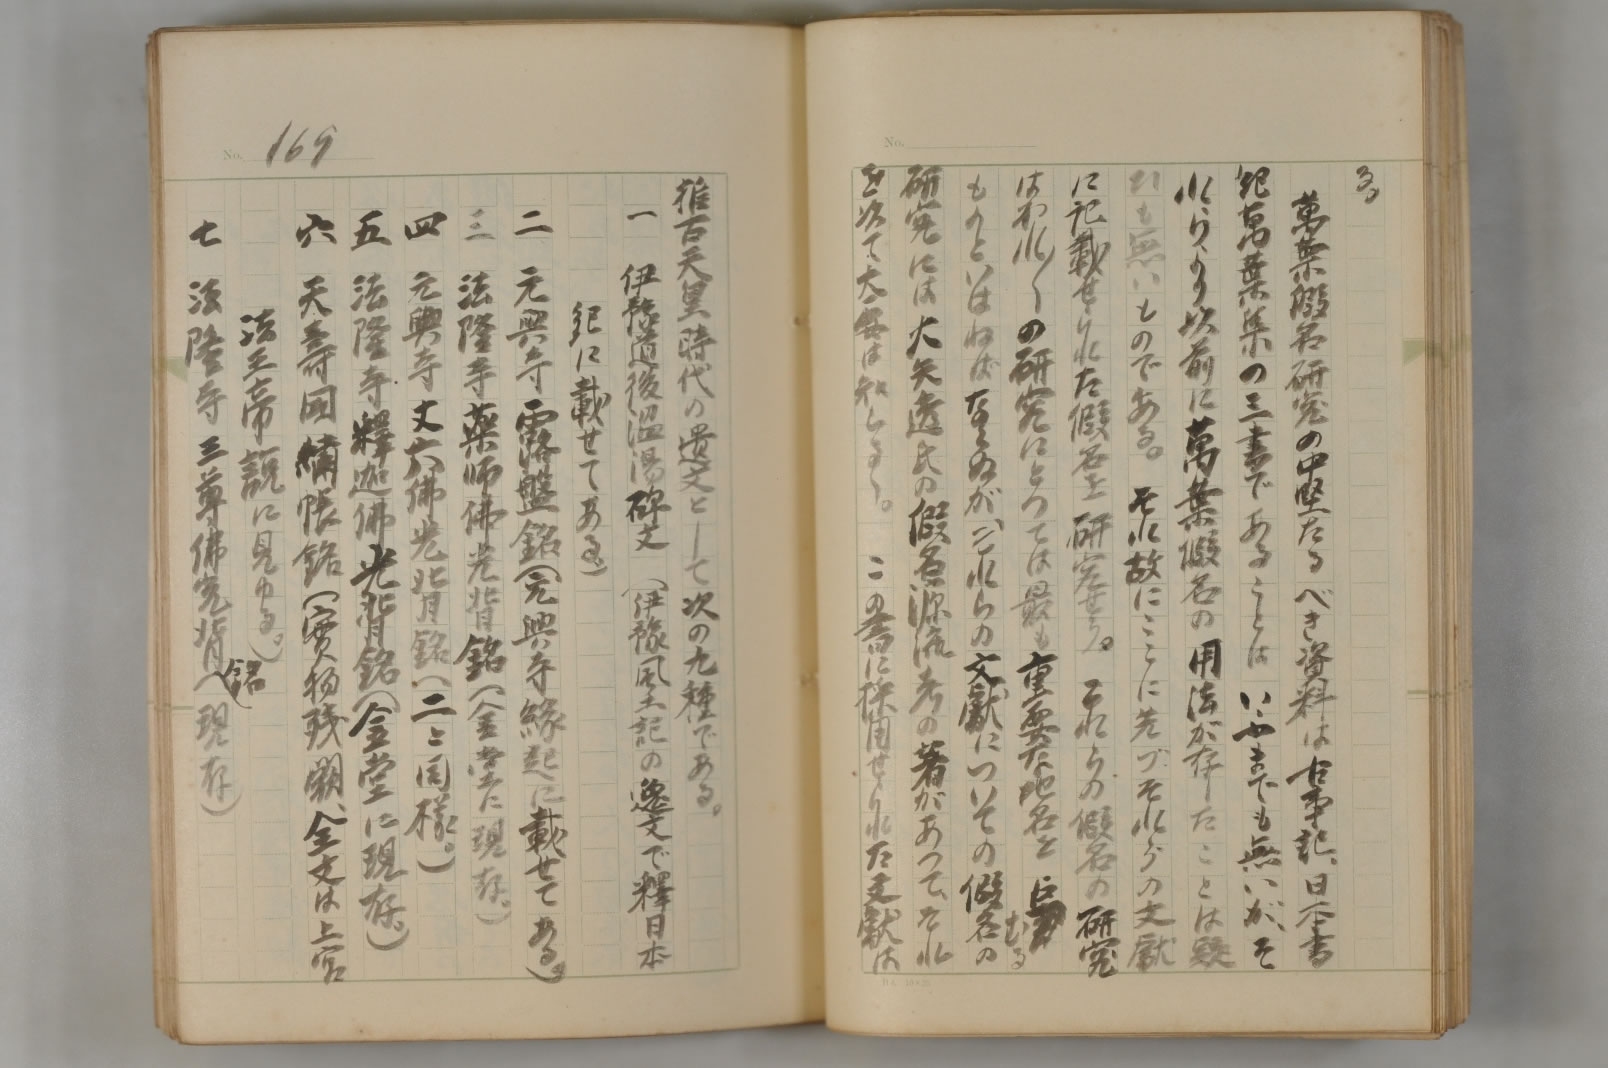 る。
萬葉假名研究の中堅たるべき資料は古事記、日本書
紀萬葉集の三書であることはいふまでも無いが、そ
れらより以前に萬葉假名の用法が存したことは疑
ひも無いものである。それ故にここに先づそれらの文獻
に記載せられた假名を研究せう。それらの假名の研究
はわれ〳〵の研究にとつては最も重要な地名を占むる
ものといはねばならぬが、これらの文獻についての假名の
研究には大矢透氏の假名源流考の著があつて、それ
を以て大要は知らるゝ。この書に採用せられた文獻は
No.
No. 169
推古天皇時代の遺文として次の九種である。
一 伊豫道後溫湯碑文(伊豫風土記の逸文で釋日本
紀に載せてある)
二 元興寺露盤銘(元興寺緣起に載せてある。)
三 法隆寺藥師佛光背銘(金堂に現存。)
四 元興寺丈六佛光背銘(二と同様。)
五 法隆寺釋迦佛光背銘(金堂に現存。)
六 天壽國繡帳銘(實物殘闕、全文は上宮
法王帝說に見ゆる。)
七 法隆寺三尊佛光背銘(現存)